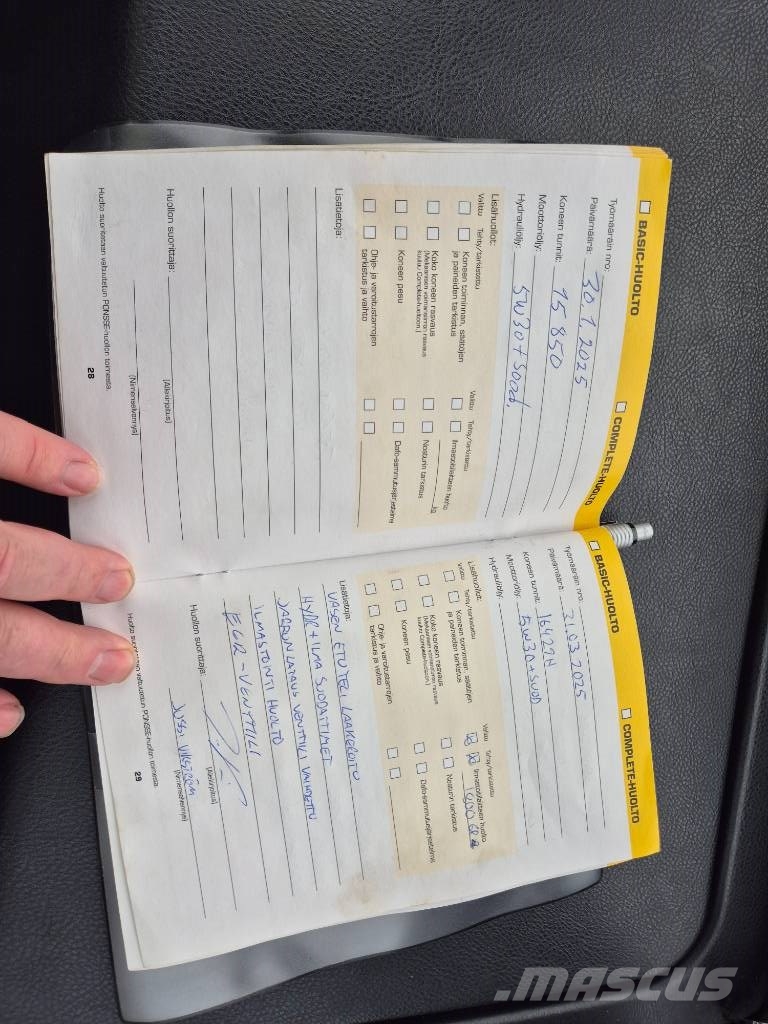 BASIC-HUOLTO
COMPLETE-HUOLTO
Työmääräin nro:
Päivämäärä: 30.1.2025
Koneen tunnit: 15 850
Moottoriöljy:
Hydrauliöljy: 5W30 + Suod.
Lisähuollot:
Valittu Tehty/tarkistettu
Koneen toiminnan, säätöjen
ja paineiden tarkistus
Koko koneen rasvaus
(Mekaanisen voimansiirron rasvaus
kuuluu Complete-huoltoon.)
Koneen pesu
Ohje- ja varoitustarrojen
tarkistus ja vaihto
Valittu Tehty/tarkistettu
Ilmastointilaitteen huolto
kg
Nosturin tarkistus
Dafo-sammutusjärjestelmä
Lisätietoja:
Huollon suorittaja:
(Allekirjoitus)
(Nimenselvennys)
Huolto suoritetaan valtuutetun PONSSE-huollon toimesta.
28
BASIC-HUOLTO
COMPLETE-HUOLTO
Työmääräin nro:
Päivämäärä: 31.03.2025
Koneen tunnit: 16422H
Moottoriöljy: 5W30+SUOD
Hydrauliöljy:
Lisähuollot:
Valittu Tehty/tarkistettu
Koneen toiminnan, säätöjen
ja paineiden tarkistus
Koko koneen rasvaus
(Mekaanisen voimansiirron rasvaus
kuuluu Complete-huoltoon.)
Koneen pesu
Ohje- ja varoitustarrojen
tarkistus ja vaihto
Valittu Tehty/tarkistettu
Ilmastointilaitteen huolto
Nosturin tarkistus
Dafo-sammutusjärjestelmä
Lisätietoja:
VASEN ETU TELI LAAKEROITU
HYDR + ILMA SUODATTIMET
JARRUN LATAUS VENTTIILI VAIHDETTU
ILMASTOINTI HUOLTO
EGR-VENTTIILI
Huollon suorittaja:
(Allekirjoitus)
(Nimenselvennys)
Huolto valtuutetun PONSSE-huollon toimesta.
29
.MASCUS